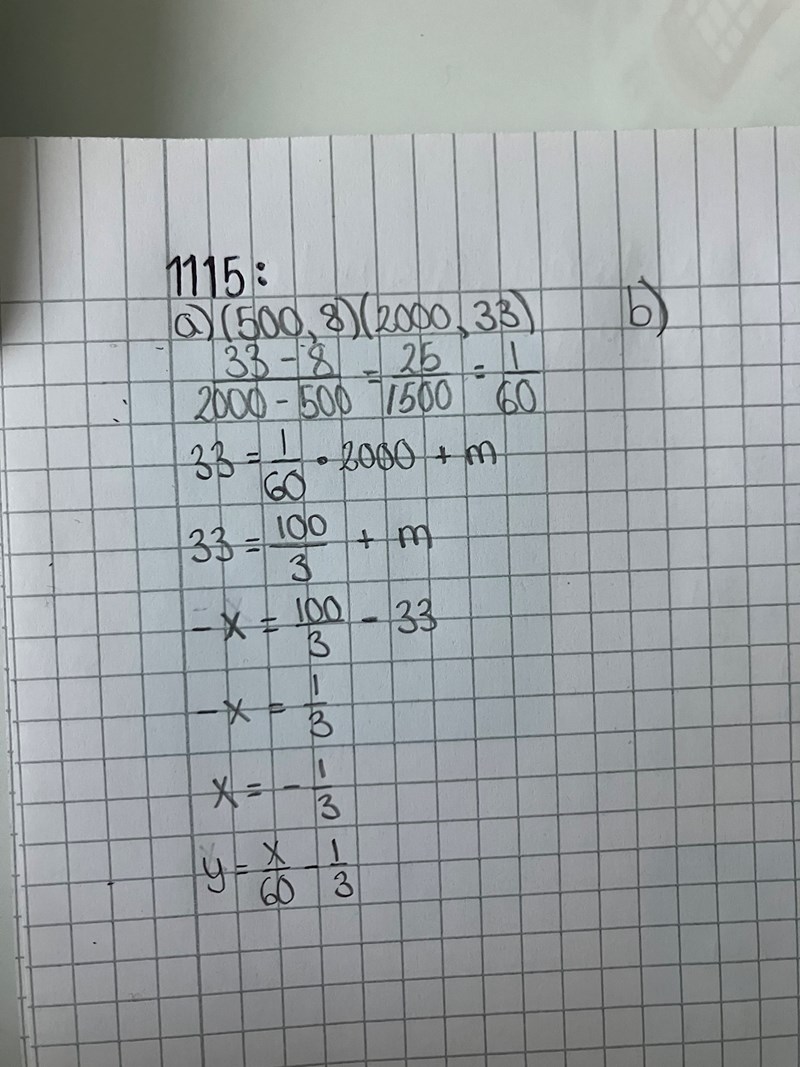 1115:
a) (500, 8) (2000, 33)
b)
33 - 8 / 2000 - 500 = 25 / 1500 = 1 / 60
33 = 1/60 • 2000 + m
33 = 100/3 + m
-x = 100/3 - 33
-x = 1/3
x = -1/3
y = x/60 - 1/3